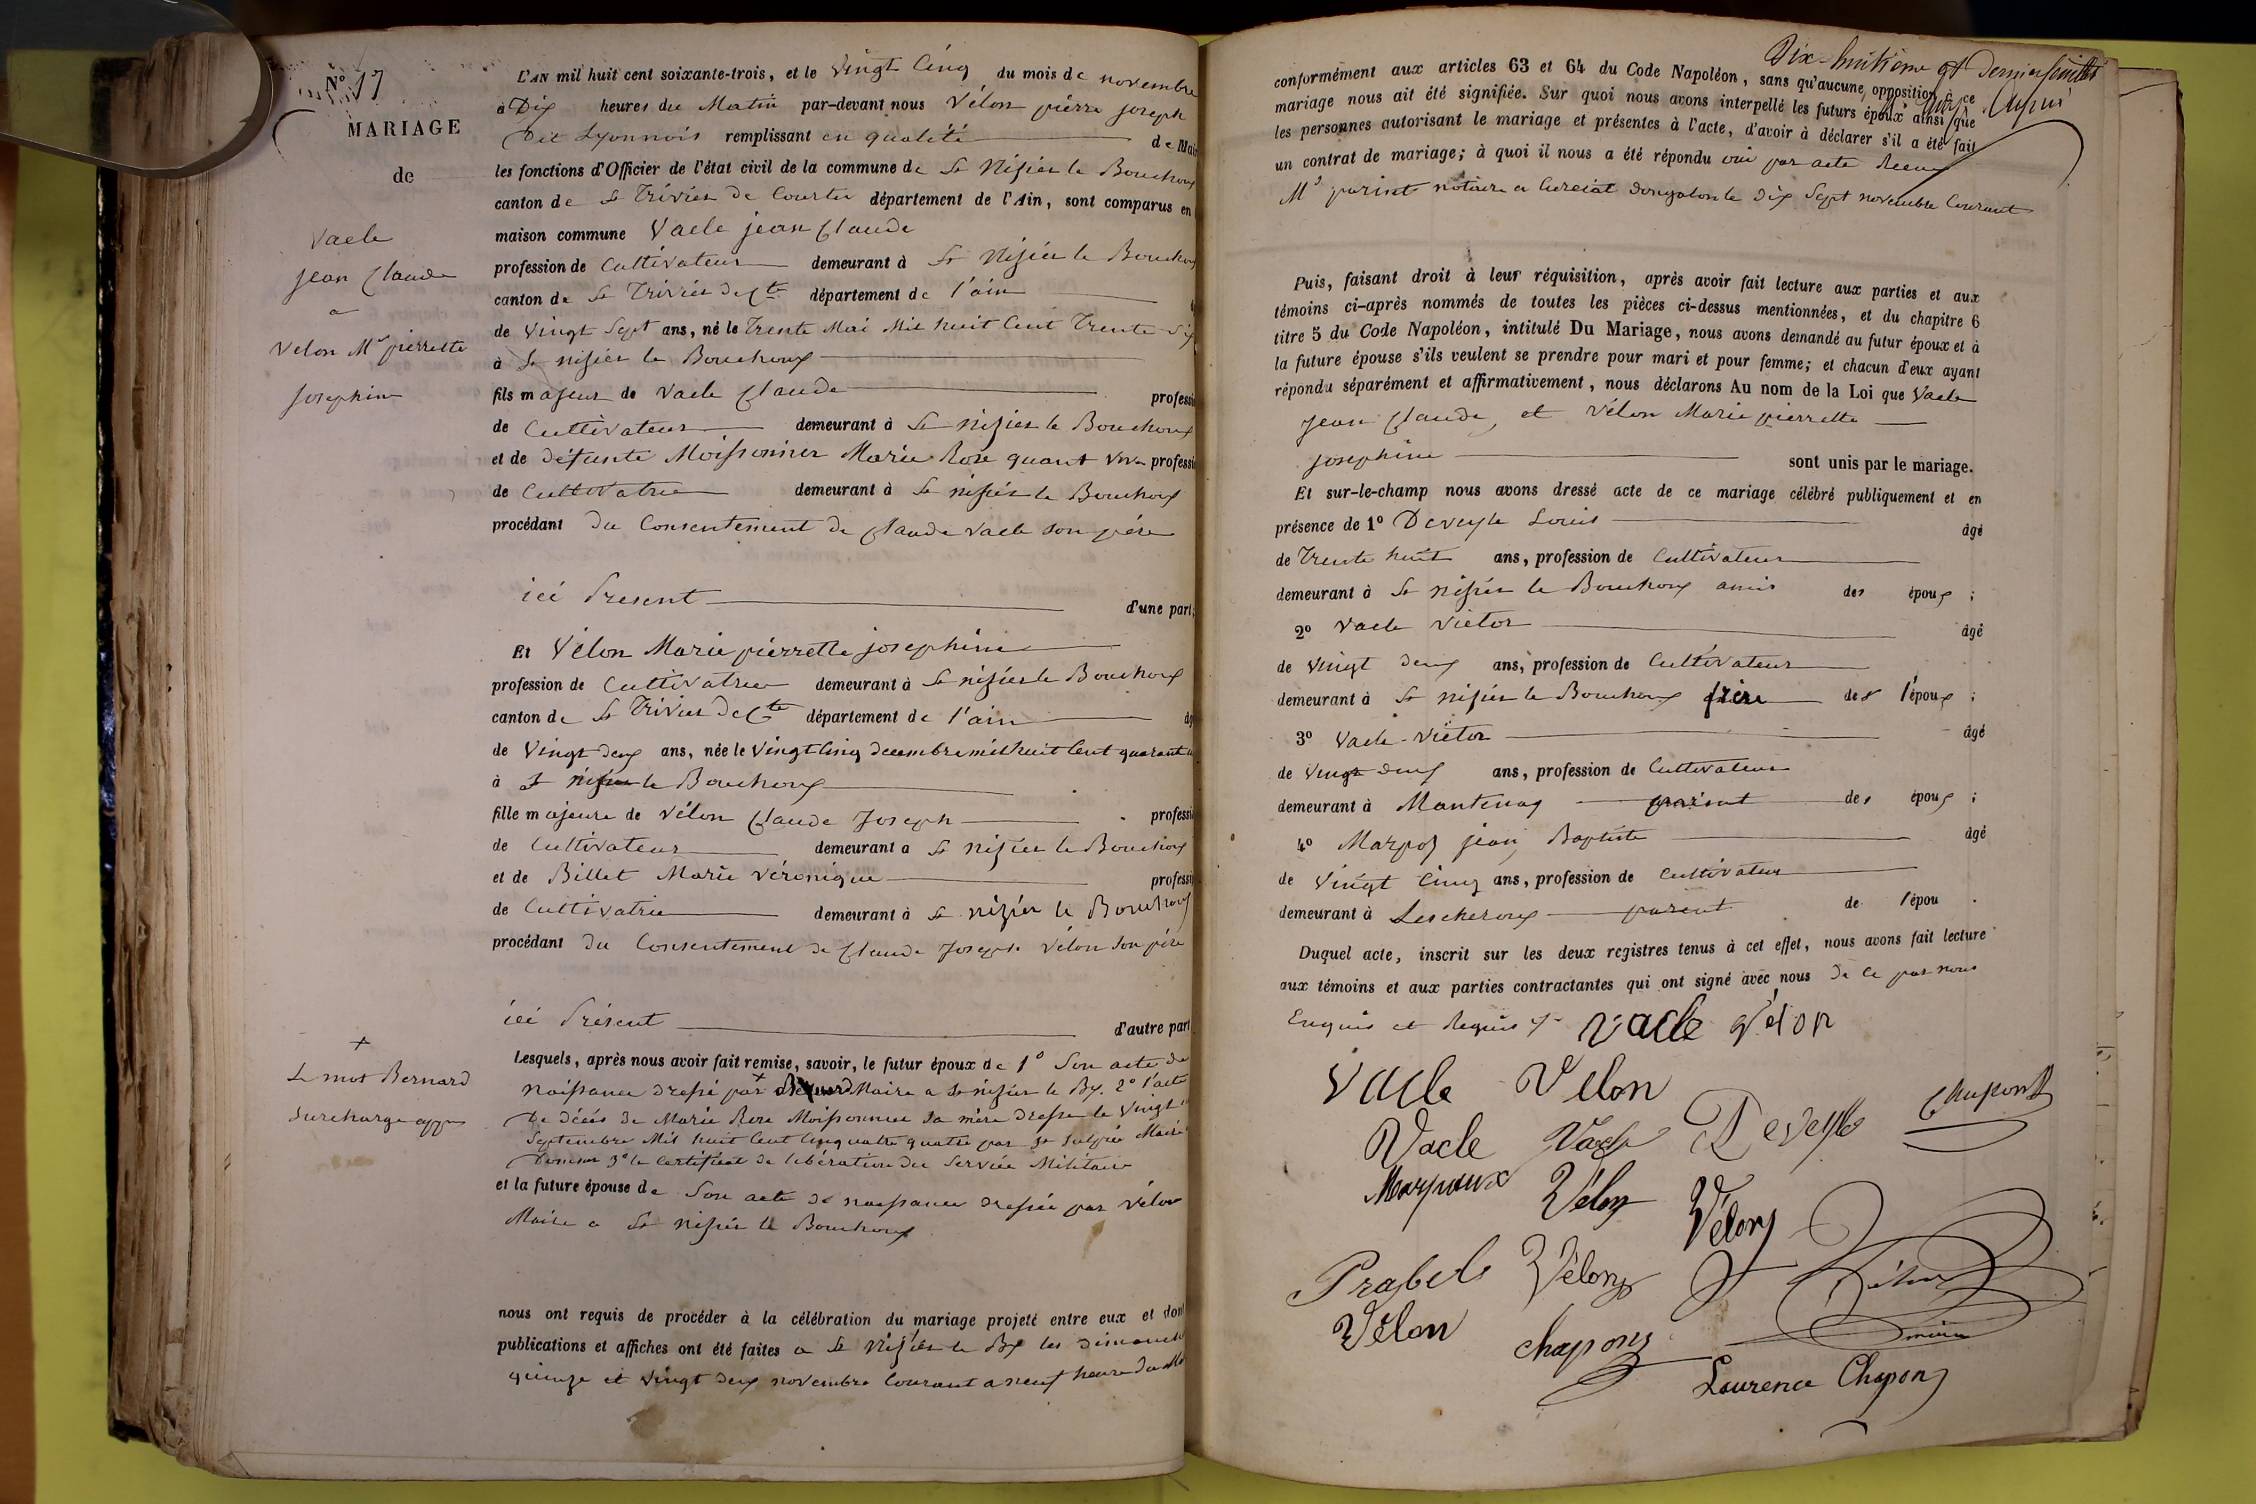 N° 17
MARIAGE
de
Vacle
jean Claude
a
Velon Mie pierrette
josephine
L'AN mil huit cent soixante-trois, et le vingt Cinq du mois de novembre
à Dix heures du Matin par-devant nous Vélon pierre joseph
Dit Lyonnois remplissant en qualité de Mai
les fonctions d'Officier de l'état civil de la commune de St Nizier le Bouchoux
canton de St Trivier de Courtes département de l'Ain, sont comparus en
maison commune Vacle jean Claude
profession de Cultivateur demeurant à St Nizier le Bouchoux
canton de St Trivier de Cte département de l'ain
de vingt Sept ans, né le Trente Mai Mil huit Cent Trente Six
à St nizier le Bouchoux
fils majeur de Vacle Claude professi
de Cultivateur demeurant à St nizier le Bouchoux
et de défunte Moissonnier Marie Rose quant vivr professi
de Cultivatrice demeurant à St nizier le Bouchoux
procédant du Consentement de Claude Vacle son père
ici Present d'une part;
Et Vélon Marie pierrette josephine
profession de Cultivatrice demeurant à St nizier le Bouchoux
canton de St Trivier de Cte département de l'ain âg
de Vingt deux ans, née le Vingt Cinq decembre mil huit Cent quarante
à St nizier le Bouchoux
fille majeure de Vélon Claude Joseph professi
de Cultivateur demeurant a St nizier le Bouchoux
et de Billet Marie Véronique professi
de Cultivatrice demeurant à St nizier le Bouchoux
procédant du Consentement de Claude Joseph Vélon Son père
ici Présent d'autre part
+
Le mot Bernard
Surcharge app
Lesquels, après nous avoir fait remise, savoir, le futur époux de 1° Son acte de
Naissance dressé par + Maire a St nizier le Bx. 2° l'acte
De décés de Marie Rose Moissonnier Sa mère dressé le Vingt
Septembre Mil huit Cent Cinquante quatre par Maire
3° le Certificat de libération du Service Militaire
et la future épouse de Son acte de naissance dressée par Vélon
Maire a St nizier le Bouchoux
nous ont requis de procéder à la célébration du mariage projeté entre eux et dont
publications et affiches ont été faites a St Nizier le Bx les dimanche
quinze et vingt deux novembre Courant a neuf heure du
Dix-huitième et Dernier feuillet
conformément aux articles 63 et 64 du Code Napoléon, sans qu'aucune opposition à ce
mariage nous ait été signifiée. Sur quoi nous avons interpellé les futurs époux ainsi que
les personnes autorisant le mariage et présentes à l'acte, d'avoir à déclarer s'il a été fait
un contrat de mariage; à quoi il nous a été répondu oui par acte Recu
notaire a Curciat dongalon le Dix Sept novembre Courant
Puis, faisant droit à leur réquisition, après avoir fait lecture aux parties et aux
témoins ci-après nommés de toutes les pièces ci-dessus mentionnées, et du chapitre 6
titre 5 du Code Napoléon, intitulé Du Mariage, nous avons demandé au futur époux et à
la future épouse s'ils veulent se prendre pour mari et pour femme; et chacun d'eux ayant
répondu séparément et affirmativement, nous déclarons Au nom de la Loi que Vacle
Jean Claude, et Vélon Marie pierrette
josephine sont unis par le mariage.
Et sur-le-champ nous avons dressé acte de ce mariage célébré publiquement et en
présence de 1° Deveyle Louis âgé
de Trente huit ans, profession de Cultivateur
demeurant à St nizier le Bouchoux amis des époux ;
2° Vacle Victor âgé
de Vingt deux ans, profession de Cultivateur
demeurant à St nizier le Bouchoux frère de l'époux ;
3° Vacle Victor âgé
de Vingt deux ans, profession de Cultivateur
demeurant à Mantenay parent des époux ;
4° Marpoz jean Baptiste âgé
de Vingt Cinq ans, profession de Cultivateur
demeurant à Lescheroux parent de l'épou .
Duquel acte, inscrit sur les deux registres tenus à cet effet, nous avons fait lecture
aux témoins et aux parties contractantes qui ont signé avec nous de Ce par nous
Enquis et Requis vacle vélon
Vacle Velon
Vacle Vacle Deveyle Chapont
Marpoux Vélon Vélon
Prabel Vélon
Vélon chapon maire
Laurence Chapon